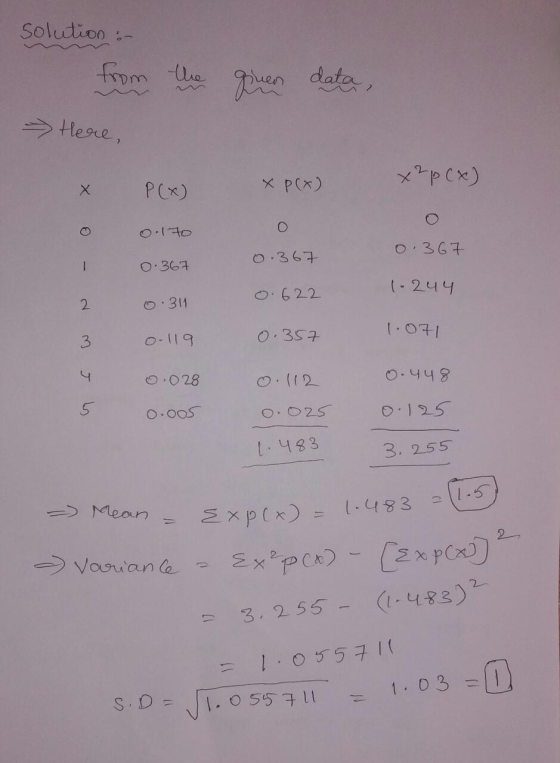 Solution :-
from the given data,
⇒ Here,
x P(x) x p(x) x²p(x)
0 0.170 0 0
1 0.367 0.367 0.367
2 0.311 0.622 1.244
3 0.119 0.357 1.071
4 0.028 0.112 0.448
5 0.005 0.025 0.125
1.483 3.255
⇒ Mean = Σxp(x) = 1.483 = 1.5
⇒ Variance = Σx²p(x) - [Σxp(x)]²
= 3.255 - (1.483)²
= 1.055711
S.D = √1.055711 = 1.03 = 1